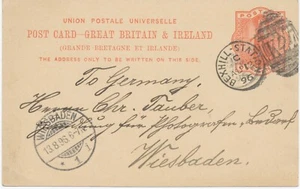 UNION POSTALE UNIVERSELLE
POST CARD—GREAT BRITAIN & IRELAND
(GRANDE BRETAGNE ET IRLANDE)
THE ADDRESS ONLY TO BE WRITTEN ON THIS SIDE.
BEXHILL-STA
96
To Germany,
Herrn Chr. Tauber,
für Photografen,
WIESBADEN
13.8.96
1
Wiesbaden.